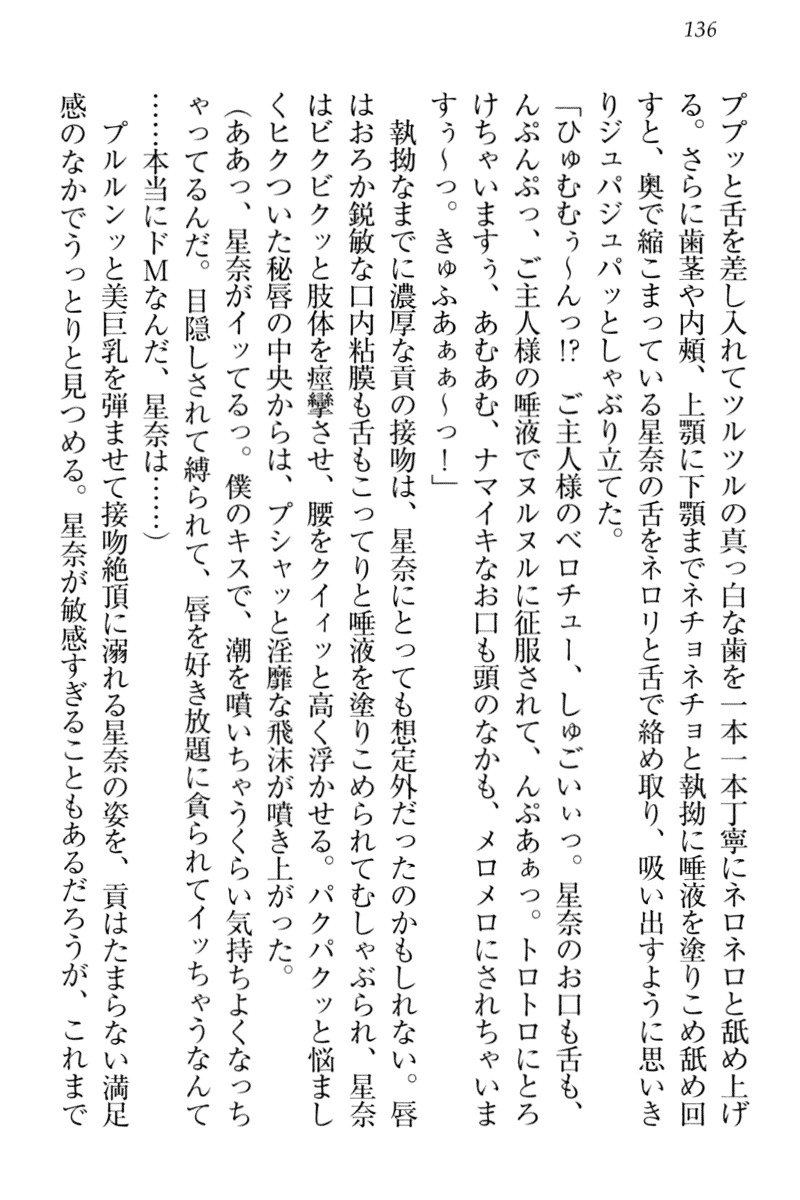 136
ププッと舌を差し入れてツルツルの真っ白な歯を一本一本丁寧にネロネロと舐め上げ
る。さらに歯茎や内頰、上顎に下顎までネチョネチョと執拗に唾液を塗りこめ舐め回
すと、奥で縮こまっている星奈の舌をネロリと舌で絡め取り、吸い出すように思いき
りジュパジュパッとしゃぶり立てた。
「ひゅむむぅ〜んっ!?　ご主人様のベロチュー、しゅごいぃっ。星奈のお口も舌も、
んぷんぷっ、ご主人様の唾液でヌルヌルに征服されて、んぷあぁっ。トロトロにとろ
けちゃいますぅ、あむあむ、ナマイキなお口も頭のなかも、メロメロにされちゃいま
すぅ〜っ。きゅふあぁぁ〜っ！」
執拗なまでに濃厚な貢の接吻は、星奈にとっても想定外だったのかもしれない。唇
はおろか鋭敏な口内粘膜も舌もこってりと唾液を塗りこめられてむしゃぶられ、星奈
はビクビクッと肢体を痙攣させ、腰をクイィッと高く浮かせる。パクパクッと悩まし
くヒクついた秘唇の中央からは、プシャッと淫靡な飛沫が噴き上がった。
（ああっ、星奈がイッてるっ。僕のキスで、潮を噴いちゃうくらい気持ちよくなっち
ゃってるんだ。目隠しされて縛られて、唇を好き放題に貪られてイッちゃうなんて
……本当にドＭなんだ、星奈は……）
プルルンッと美巨乳を弾ませて接吻絶頂に溺れる星奈の姿を、貢はたまらない満足
感のなかでうっとりと見つめる。星奈が敏感すぎることもあるだろうが、これまで